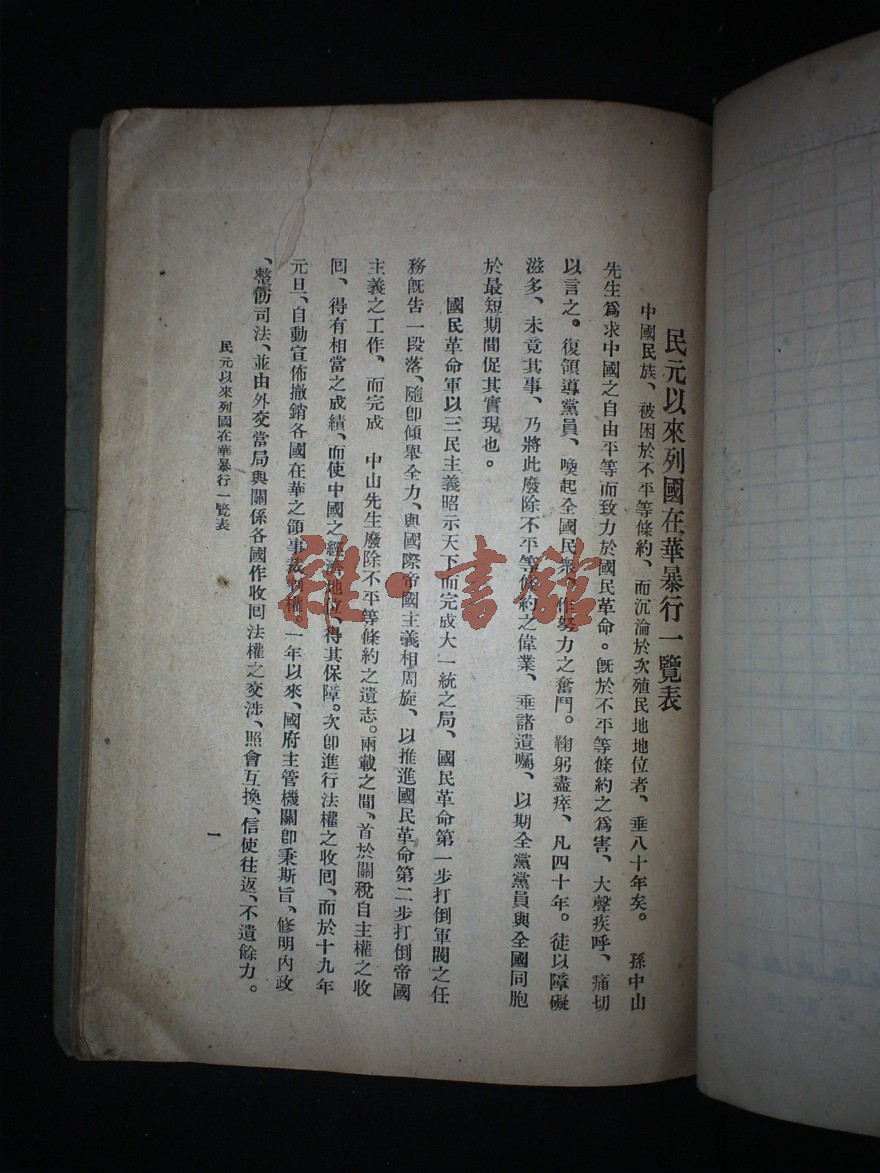 民元以來列國在華暴行一覽表
中國民族、被困於不平等條約、而沉淪於次殖民地地位者、垂八十年矣。　孫中山
先生爲求中國之自由平等而致力於國民革命。旣於不平等條約之爲害、大聲疾呼、痛切
以言之。復領導黨員、喚起全國民衆、作努力之奮鬥。鞠躬盡瘁、凡四十年。徒以障礙
滋多、未竟其事、乃將此廢除不平等條約之偉業、垂諸遺囑、以期全黨黨員與全國同胞
於最短期間促其實現也。
國民革命軍以三民主義昭示天下而完成大一統之局、國民革命第一步打倒軍閥之任
務旣告一段落、隨卽傾舉全力、與國際帝國主義相周旋、以推進國民革命第二步打倒帝國
主義之工作、而完成　中山先生廢除不平等條約之遺志。兩載之間、首於關稅自主權之收
囘、得有相當之成績、而使中國之經濟地位、得其保障。次卽進行法權之收囘、而於十九年
元旦、自動宣佈撤銷各國在華之領事裁判權。一年以來、國府主管機關卽秉斯旨、修明內政
、整飭司法、並由外交當局與關係各國作收囘法權之交涉、照會互換、信使往返、不遺餘力。
民元以來列國在華暴行一覽表
一
雜·書館